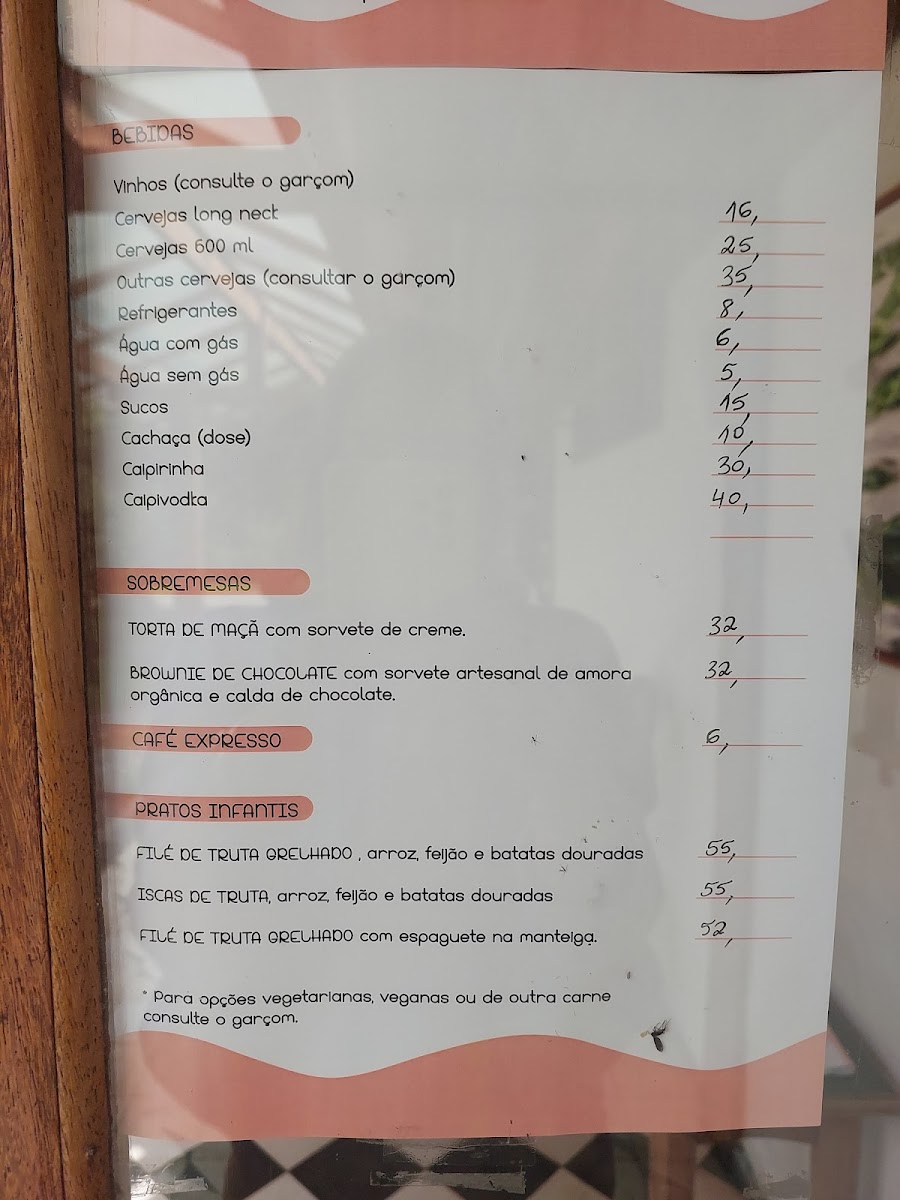 BEBIDAS
Vinhos (consulte o garçom)
Cervejas long neck 16,
Cervejas 600 ml 25,
Outras cervejas (consultar o garçom) 35,
Refrigerantes 8,
Água com gás 6,
Água sem gás 5,
Sucos 15,
Cachaça (dose) 10,
Caipirinha 30,
Caipivodka 40,
SOBREMESAS
TORTA DE MAÇÃ com sorvete de creme. 32,
BROWNIE DE CHOCOLATE com sorvete artesanal de amora 32,
orgânica e calda de chocolate.
CAFÉ EXPRESSO 6,
PRATOS INFANTIS
FILÉ DE TRUTA GRELHADO , arroz, feijão e batatas douradas 55,
ISCAS DE TRUTA, arroz, feijão e batatas douradas 55,
FILÉ DE TRUTA GRELHADO com espaguete na manteiga. 52,
* Para opções vegetarianas, veganas ou de outra carne
consulte o garçom.